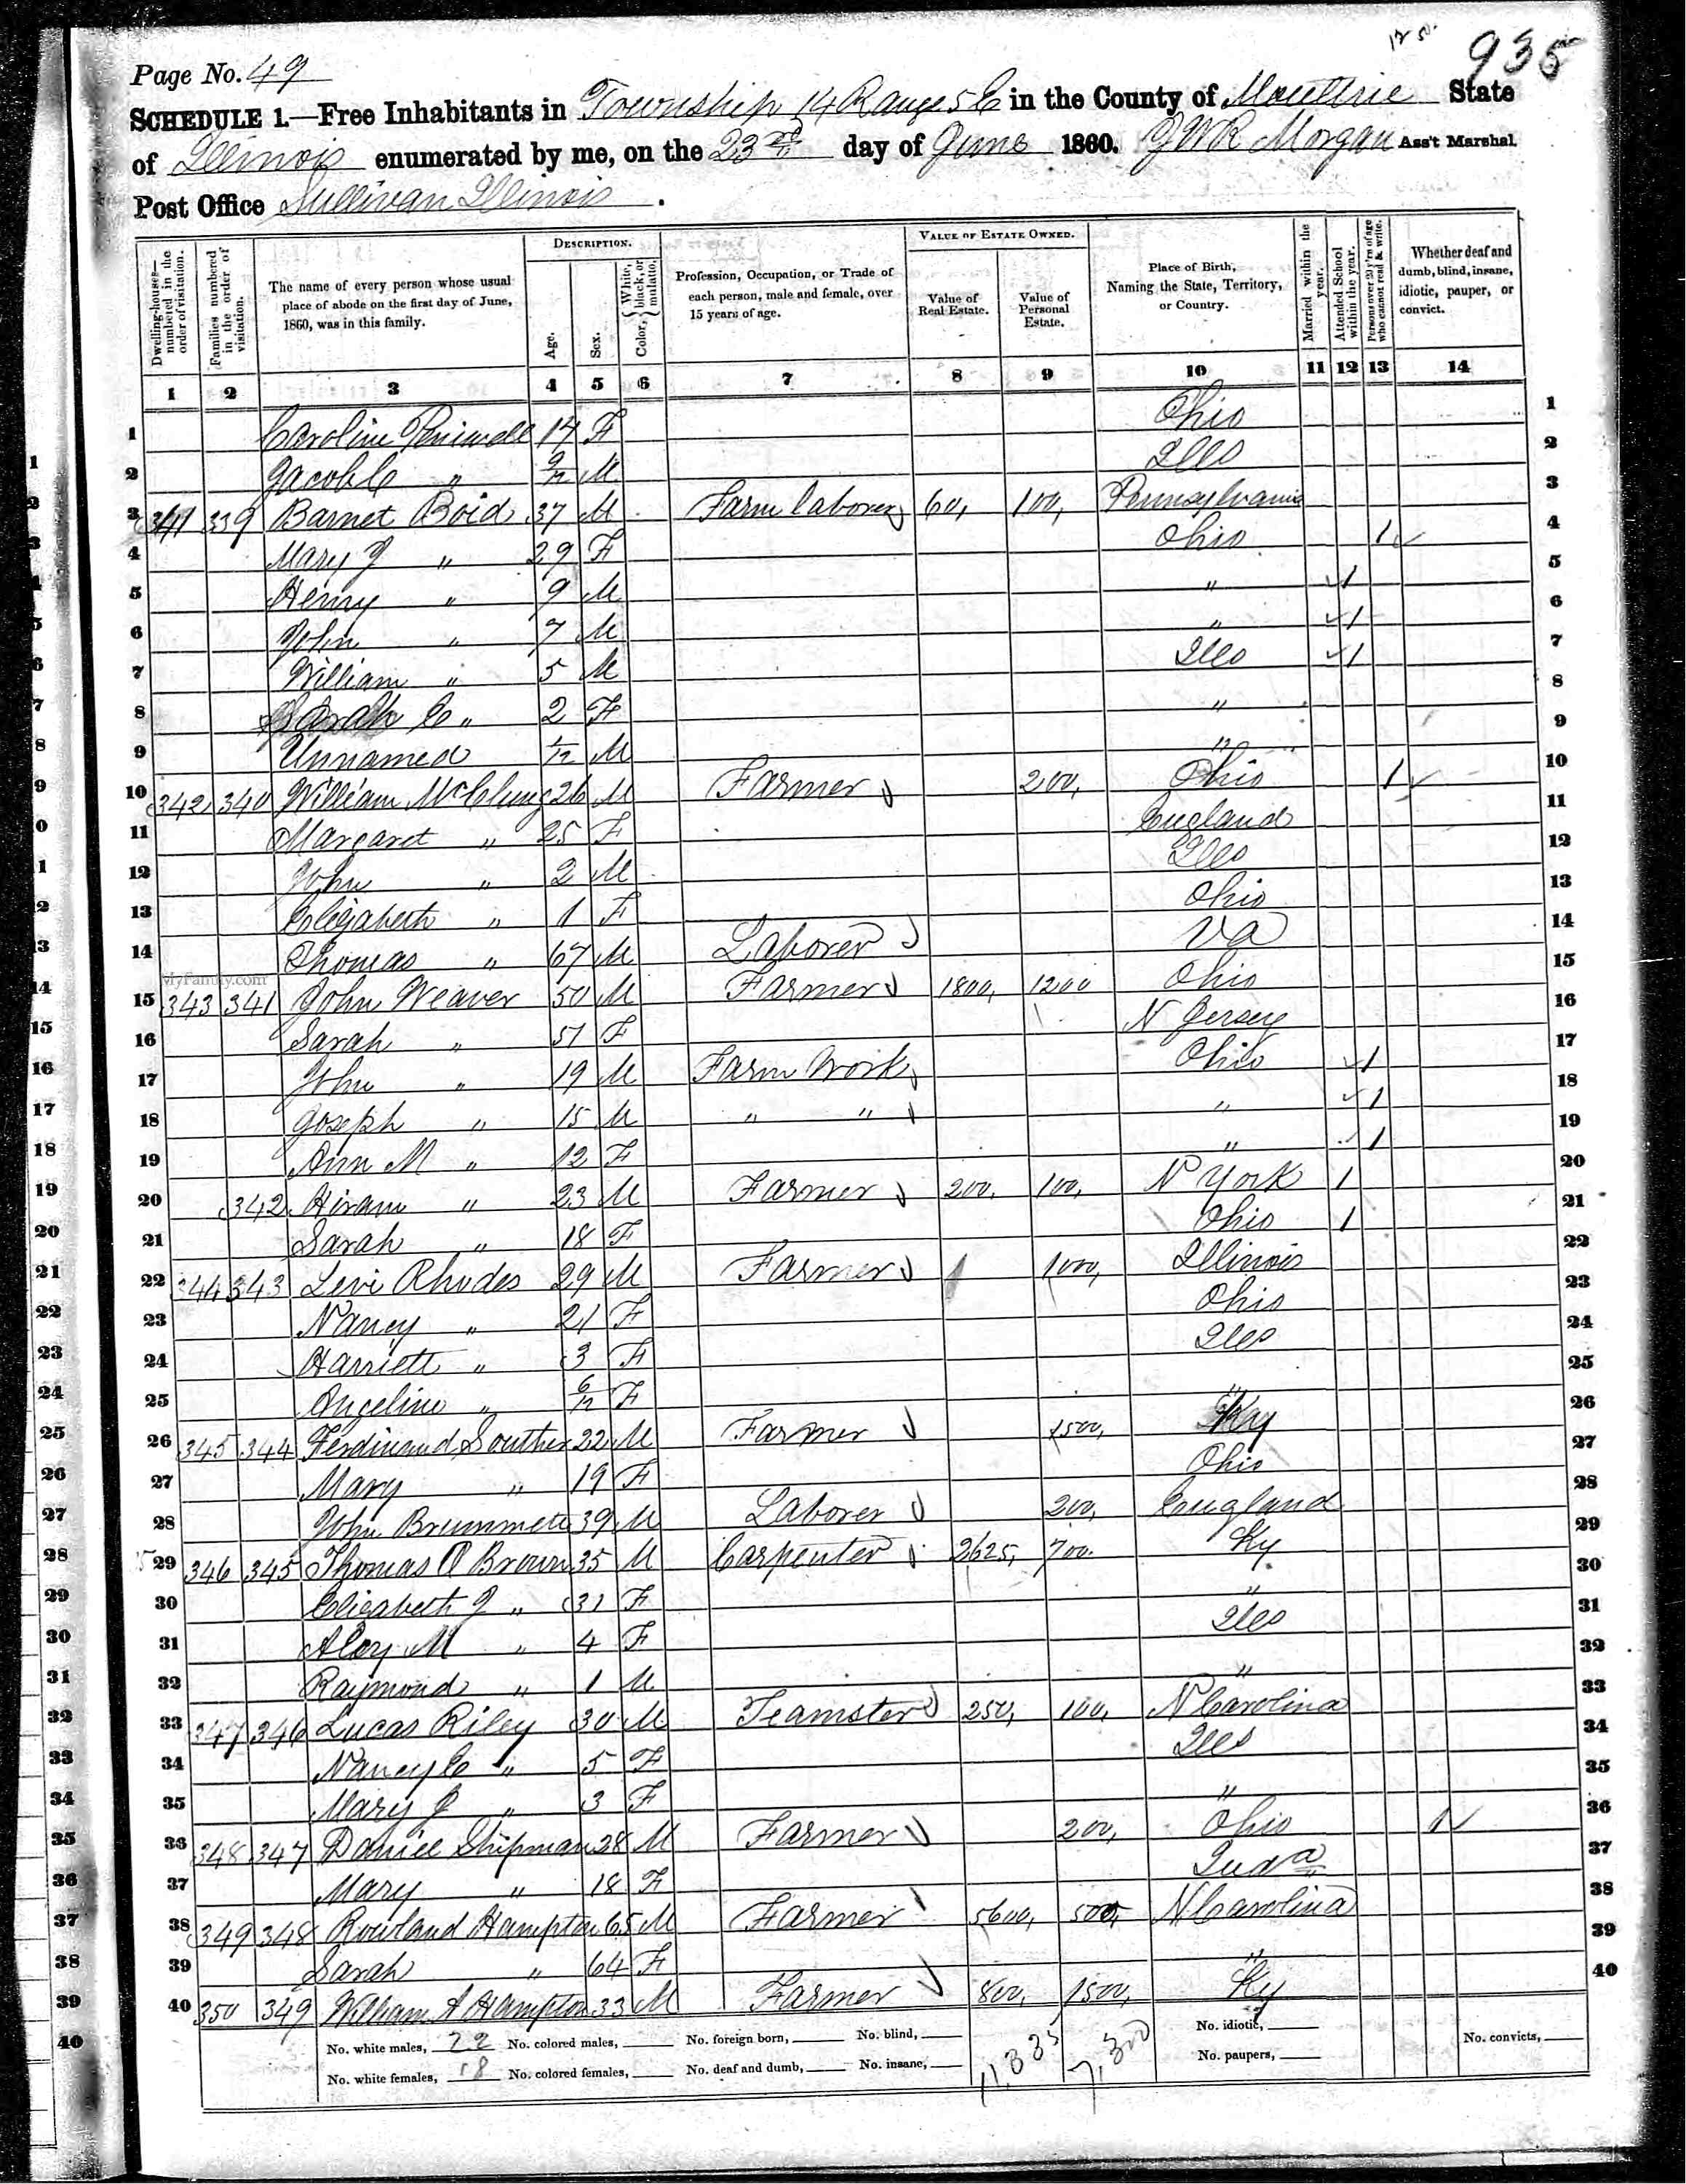 12 50.
935
Page No. 49
SCHEDULE 1.—Free Inhabitants in Township 14 Range 5 E in the County of Moultrie State
of Illinois enumerated by me, on the 23rd day of June 1860. J W R Morgan Ass't Marshal.
Post Office Sullivan Illinois.
Dwelling-houses—numbered in the order of visitation. Families numbered in the order of visitation. The name of every person whose usual place of abode on the first day of June, 1860, was in this family. DESCRIPTION. Age. Sex. Color, {White, black, or mulatto. Profession, Occupation, or Trade of each person, male and female, over 15 years of age. VALUE OF ESTATE OWNED. Value of Real Estate. Value of Personal Estate. Place of Birth, Naming the State, Territory, or Country. Married within the year. Attended School within the year. Persons over 20 y'rs of age who cannot read & write. Whether deaf and dumb, blind, insane, idiotic, pauper, or convict.
1 2 3 4 5 6 7 8 9 10 11 12 13 14
1 Caroline 17 F Ohio 1
2 Jacob C " 9/12 M Ills 2
3 341 339 Barnet Boid 37 M Farm laborer 60, 100, Pennsylvania 3
4 Mary J " 29 F Ohio 1 4
5 Henry " 9 M " 1 5
6 John " 7 M " 1 6
7 William " 5 M Ills 1 7
8 Sarah C " 2 F " 8
9 Unnamed 1/12 M " 9
10 342 340 William McClung 26 M Farmer 200, Ohio 1 10
11 Margaret " 25 F England 11
12 John " 2 M Ills 12
13 Elizabeth " 1 F Ohio 13
14 Thomas " 67 M Laborer Va 14
MyFamily.com
15 343 341 John Weaver 50 M Farmer 1800, 1200 Ohio 15
16 Sarah " 51 F N Jersey 16
17 John " 19 M Farm Work Ohio 1 17
18 Joseph " 15 M " " " 1 18
19 Ann M " 12 F " 1 19
20 342 Hiram " 23 M Farmer 200, 100, N York 1 20
21 Sarah " 18 F Ohio 1 21
22 344 343 Levi Rhodes 29 M Farmer 1000, Illinois 22
23 Nancy " 21 F Ohio 23
24 Harriett " 3 F Ills 24
25 Angeline " 6/12 F " 25
26 345 344 Ferdinand Souther 22 M Farmer 1500, Ky 26
27 Mary " 19 F Ohio 27
28 John Brummett 39 M Laborer 200, England 28
29 346 345 Thomas A Brown 35 M Carpenter 2625, 700. Ky 29
30 Elizabeth J " 31 F " 30
31 M " 4 F Ills 31
32 Raymond " 1 M " 32
33 347 346 Lucas Riley 30 M Teamster 250, 100, N Carolina 33
34 Nancy C " 5 F Ills 34
35 Mary J " 3 F " 35
36 348 347 Daniel Shipman 28 M Farmer 200, Ohio 1 36
37 Mary " 18 F Inda 37
38 349 348 Rowland Hampton 65 M Farmer 5600, 500, N Carolina 38
39 Sarah " 64 F " 39
40 350 349 William A Hampton 33 M Farmer 800, 1500, Ky 40
No. white males, 22 No. colored males, No. foreign born, No. blind, 11,335 7,300 No. idiotic, No. convicts,
No. white females, 18 No. colored females, No. deaf and dumb, No. insane, No. paupers,